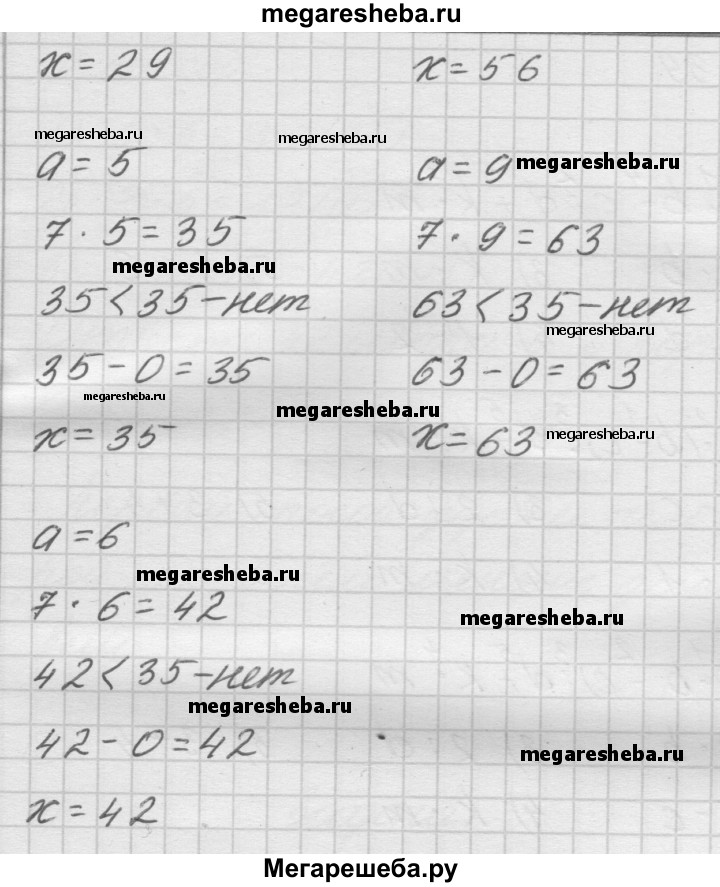 megaresheba.ru
x = 29
x = 56
megaresheba.ru
megaresheba.ru
a = 5
a = 9
megaresheba.ru
7 · 5 = 35
7 · 9 = 63
megaresheba.ru
35 < 35 - нет
63 < 35 - нет
megaresheba.ru
35 - 0 = 35
63 - 0 = 63
megaresheba.ru
megaresheba.ru
x = 35
x = 63
megaresheba.ru
a = 6
megaresheba.ru
7 · 6 = 42
megaresheba.ru
42 < 35 - нет
megaresheba.ru
42 - 0 = 42
megaresheba.ru
x = 42
Мегарешеба.ру